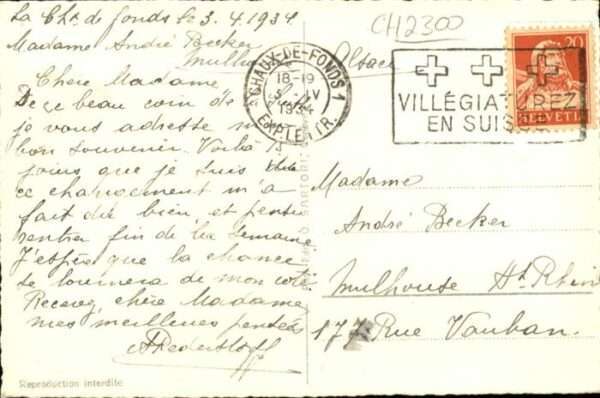 La Cht de fonds le 3. 4. 1934
Madame André Becker
Mulh
Alsace
CH2300
Chère Madame
De ce beau coin de
je vous adresse m
bon souvenir. Voilà
jours que je suis
ce changement m'a
fait du bien, et
rentrer fin de la semaine
J'espère que la chance
se tournera de mon coté
Recevez, chère Madame,
mes meilleures pensées
CHAUX-DE-FONDS 1
18-19
3. IV
1934
VILLÉGIATUREZ
EN SUISSE
20
HELVETIA
Madame
André Becker
Mulhouse Ht Rhin
177 Rue Vauban.
Reproduction interdite